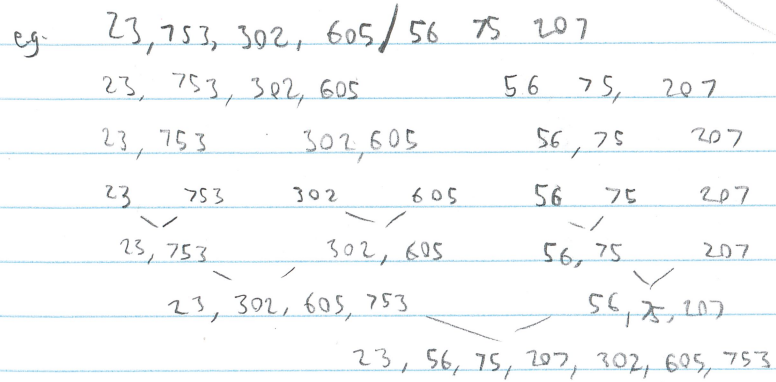 eg. 23, 753, 302, 605/56 75 207
23, 753, 302, 605 56 75, 207
23, 753 302, 605 56, 75 207
23 753 302 605 56 75 207
23, 753 302, 605 56, 75 207
23, 302, 605, 753 56, 75, 207
23, 56, 75, 207, 302, 605, 753